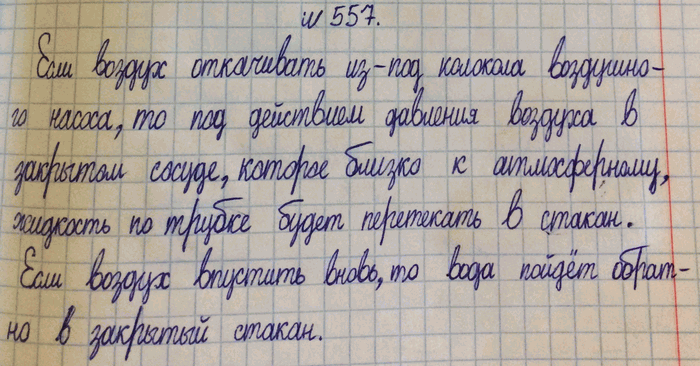 № 557.
Если воздух откачивать из-под колокола воздушно-
го насоса, то под действием давления воздуха в
закрытом сосуде, которое близко к атмосферному,
жидкость по трубке будет перетекать в стакан.
Если воздух впустить вновь, то вода пойдёт обрат-
но в закрытый стакан.